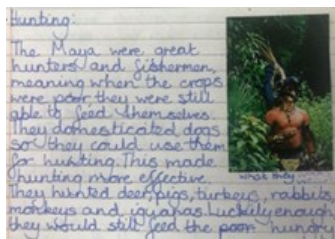 Hunting:
The Maya were great
hunters and fishermen,
meaning when the crops
were poor they were still
able to feed themselves.
They domesticated dogs
so they could use them
for hunting. This made
hunting more effective.
what they
They hunted deer, pigs, turkeys, rabbits,
monkeys and iguanas. Luckily enough,
they would still feed the poor hungry